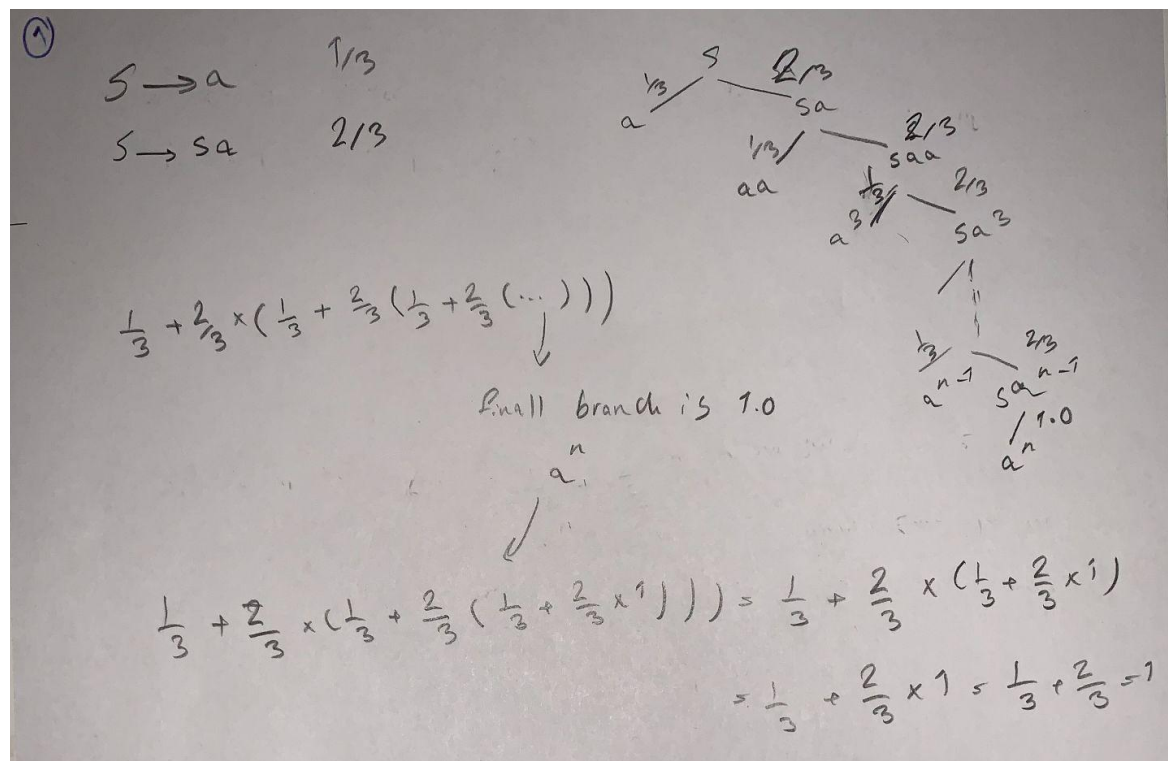 1
S → a 1/3
S → Sa 2/3
S
1/3 2/3
a Sa
1/3 2/3
aa Saa
1/3 2/3
a^3 Sa^3
1/3 2/3
a^{n-1} Sa^{n-1}
1.0
a^n
1/3 + 2/3 × (1/3 + 2/3 (1/3 + 2/3 (...)))
finall branch is 1.0
a^n
1/3 + 2/3 × (1/3 + 2/3 (1/3 + 2/3 × 1))) = 1/3 + 2/3 × (1/3 + 2/3 × 1)
= 1/3 + 2/3 × 1 = 1/3 + 2/3 = 1